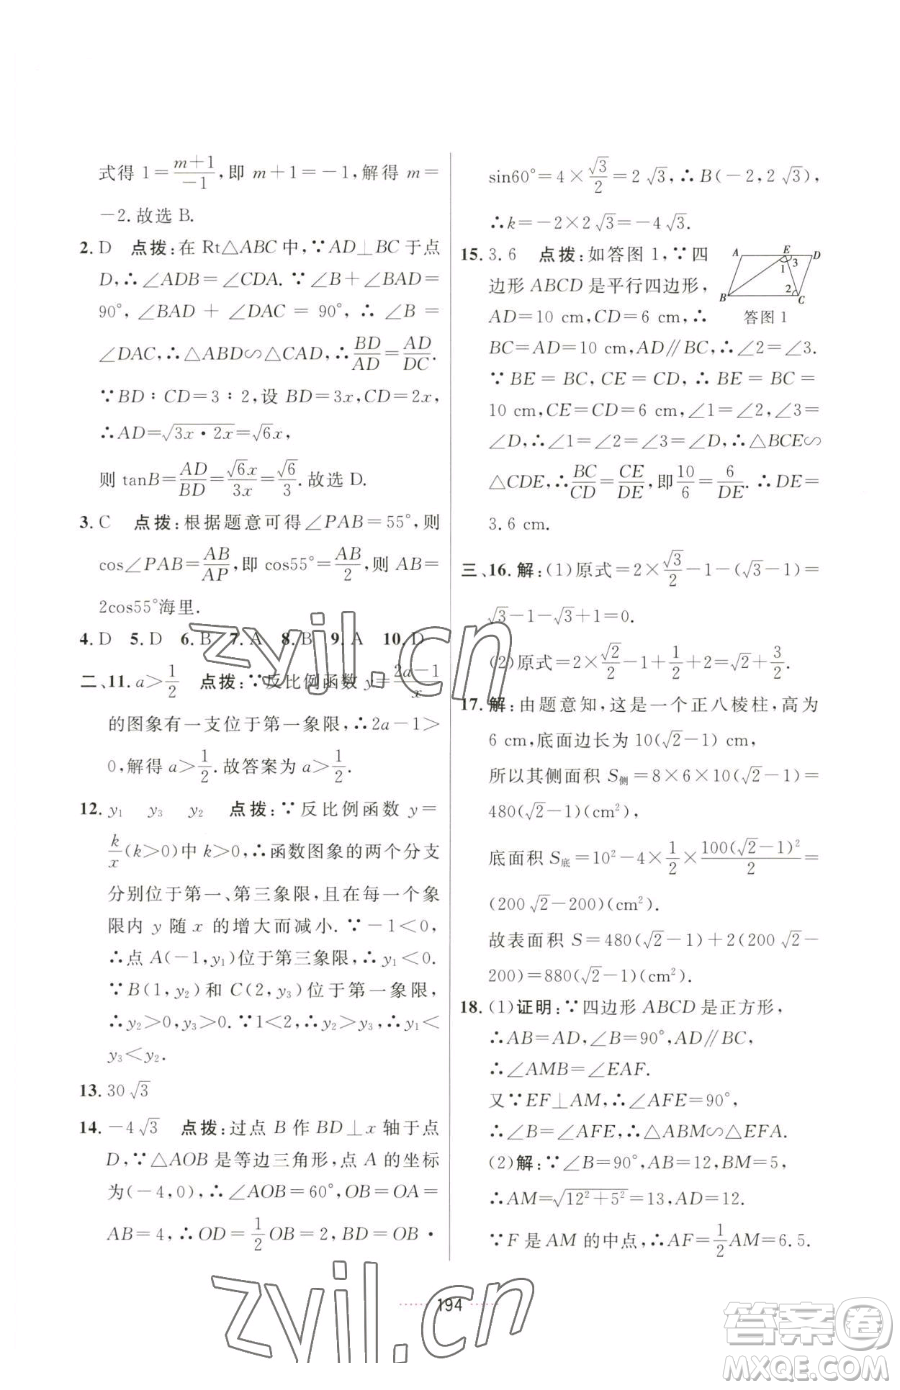 式得 1=\frac{m+1}{-1},即 m+1=-1,解得 m=
-2.故选 B.
2. D 点拨:在 Rt△ABC 中,∵AD⊥BC 于点
D,∴∠ADB=∠CDA.∵∠B+∠BAD=
90°,∠BAD+∠DAC=90°,∴∠B=
∠DAC,∴△ABD∽△CAD,∴\frac{BD}{AD}=\frac{AD}{DC}.
∵BD:CD=3:2,设 BD=3x,CD=2x,
∴AD=\sqrt{3x·2x}=\sqrt{6}x,
则 tanB=\frac{AD}{BD}=\frac{\sqrt{6}x}{3x}=\frac{\sqrt{6}}{3}.故选 D.
3. C 点拨:根据题意可得∠PAB=55°,则
cos∠PAB=\frac{AB}{AP},即 cos55°=\frac{AB}{2},则 AB=
2cos55°海里.
4. D 5. D 6. B 7. A 8. B 9. A 10. D
二、11. a>\frac{1}{2} 点拨:∵反比例函数 y=\frac{2a-1}{x}
的图象有一支位于第一象限,∴2a-1>
0,解得 a>\frac{1}{2}.故答案为 a>\frac{1}{2}.
12. y₁ y₃ y₂ 点拨:∵反比例函数 y=
\frac{k}{x}(k>0)中 k>0,∴函数图象的两个分支
分别位于第一、第三象限,且在每一个象
限内 y 随 x 的增大而减小.∵-1<0,
∴点 A(-1,y₁)位于第三象限,∴y₁<0.
∵B(1,y₂)和 C(2,y₃)位于第一象限,
∴y₂>0,y₃>0.∵1<2,∴y₂>y₃,∴y₁<
y₃<y₂.
13. 30\sqrt{3}
14. -4\sqrt{3} 点拨:过点 B 作 BD⊥x 轴于点
D,∵△AOB 是等边三角形,点 A 的坐标
为(-4,0),∴∠AOB=60°,OB=OA=
AB=4,∴OD=\frac{1}{2}OB=2,BD=OB·
sin60°=4×\frac{\sqrt{3}}{2}=2\sqrt{3},∴B(-2,2\sqrt{3}),
∴k=-2×2\sqrt{3}=-4\sqrt{3}.
15. 3.6 点拨:如答图 1,∵四
边形 ABCD 是平行四边形,
AD=10 cm,CD=6 cm,∴
A E D
1 3
2
B C
答图 1
BC=AD=10 cm,AD∥BC,∴∠2=∠3.
∵BE=BC,CE=CD,∴BE=BC=
10 cm,CE=CD=6 cm,∠1=∠2,∠3=
∠D,∴∠1=∠2=∠3=∠D,∴△BCE∽
△CDE,∴\frac{BC}{CD}=\frac{CE}{DE},即\frac{10}{6}=\frac{6}{DE}.∴DE=
3.6 cm.
三、16. 解:(1)原式=2×\frac{\sqrt{3}}{2}-1-(\sqrt{3}-1)=
\sqrt{3}-1-\sqrt{3}+1=0.
(2)原式=2×\frac{\sqrt{2}}{2}-1+\frac{1}{2}+2=\sqrt{2}+\frac{3}{2}.
17. 解:由题意知,这是一个正八棱柱,高为
6 cm,底面边长为 10(\sqrt{2}-1) cm,
所以其侧面积 S侧=8×6×10(\sqrt{2}-1)=
480(\sqrt{2}-1)(cm²),
底面积 S底=10²-4×\frac{1}{2}×\frac{100(\sqrt{2}-1)²}{2}=
(200\sqrt{2}-200)(cm²).
故表面积 S=480(\sqrt{2}-1)+2(200\sqrt{2}-
200)=880(\sqrt{2}-1)(cm²).
18. (1)证明:∵四边形 ABCD 是正方形,
∴AB=AD,∠B=90°,AD∥BC,
∴∠AMB=∠EAF.
又∵EF⊥AM,∴∠AFE=90°,
∴∠B=∠AFE,∴△ABM∽△EFA.
(2)解:∵∠B=90°,AB=12,BM=5,
∴AM=\sqrt{12²+5²}=13,AD=12.
∵F 是 AM 的中点,∴AF=\frac{1}{2}AM=6.5.
194
zyjl.cn
zyjl.cn
答案卷
MXQE.COM